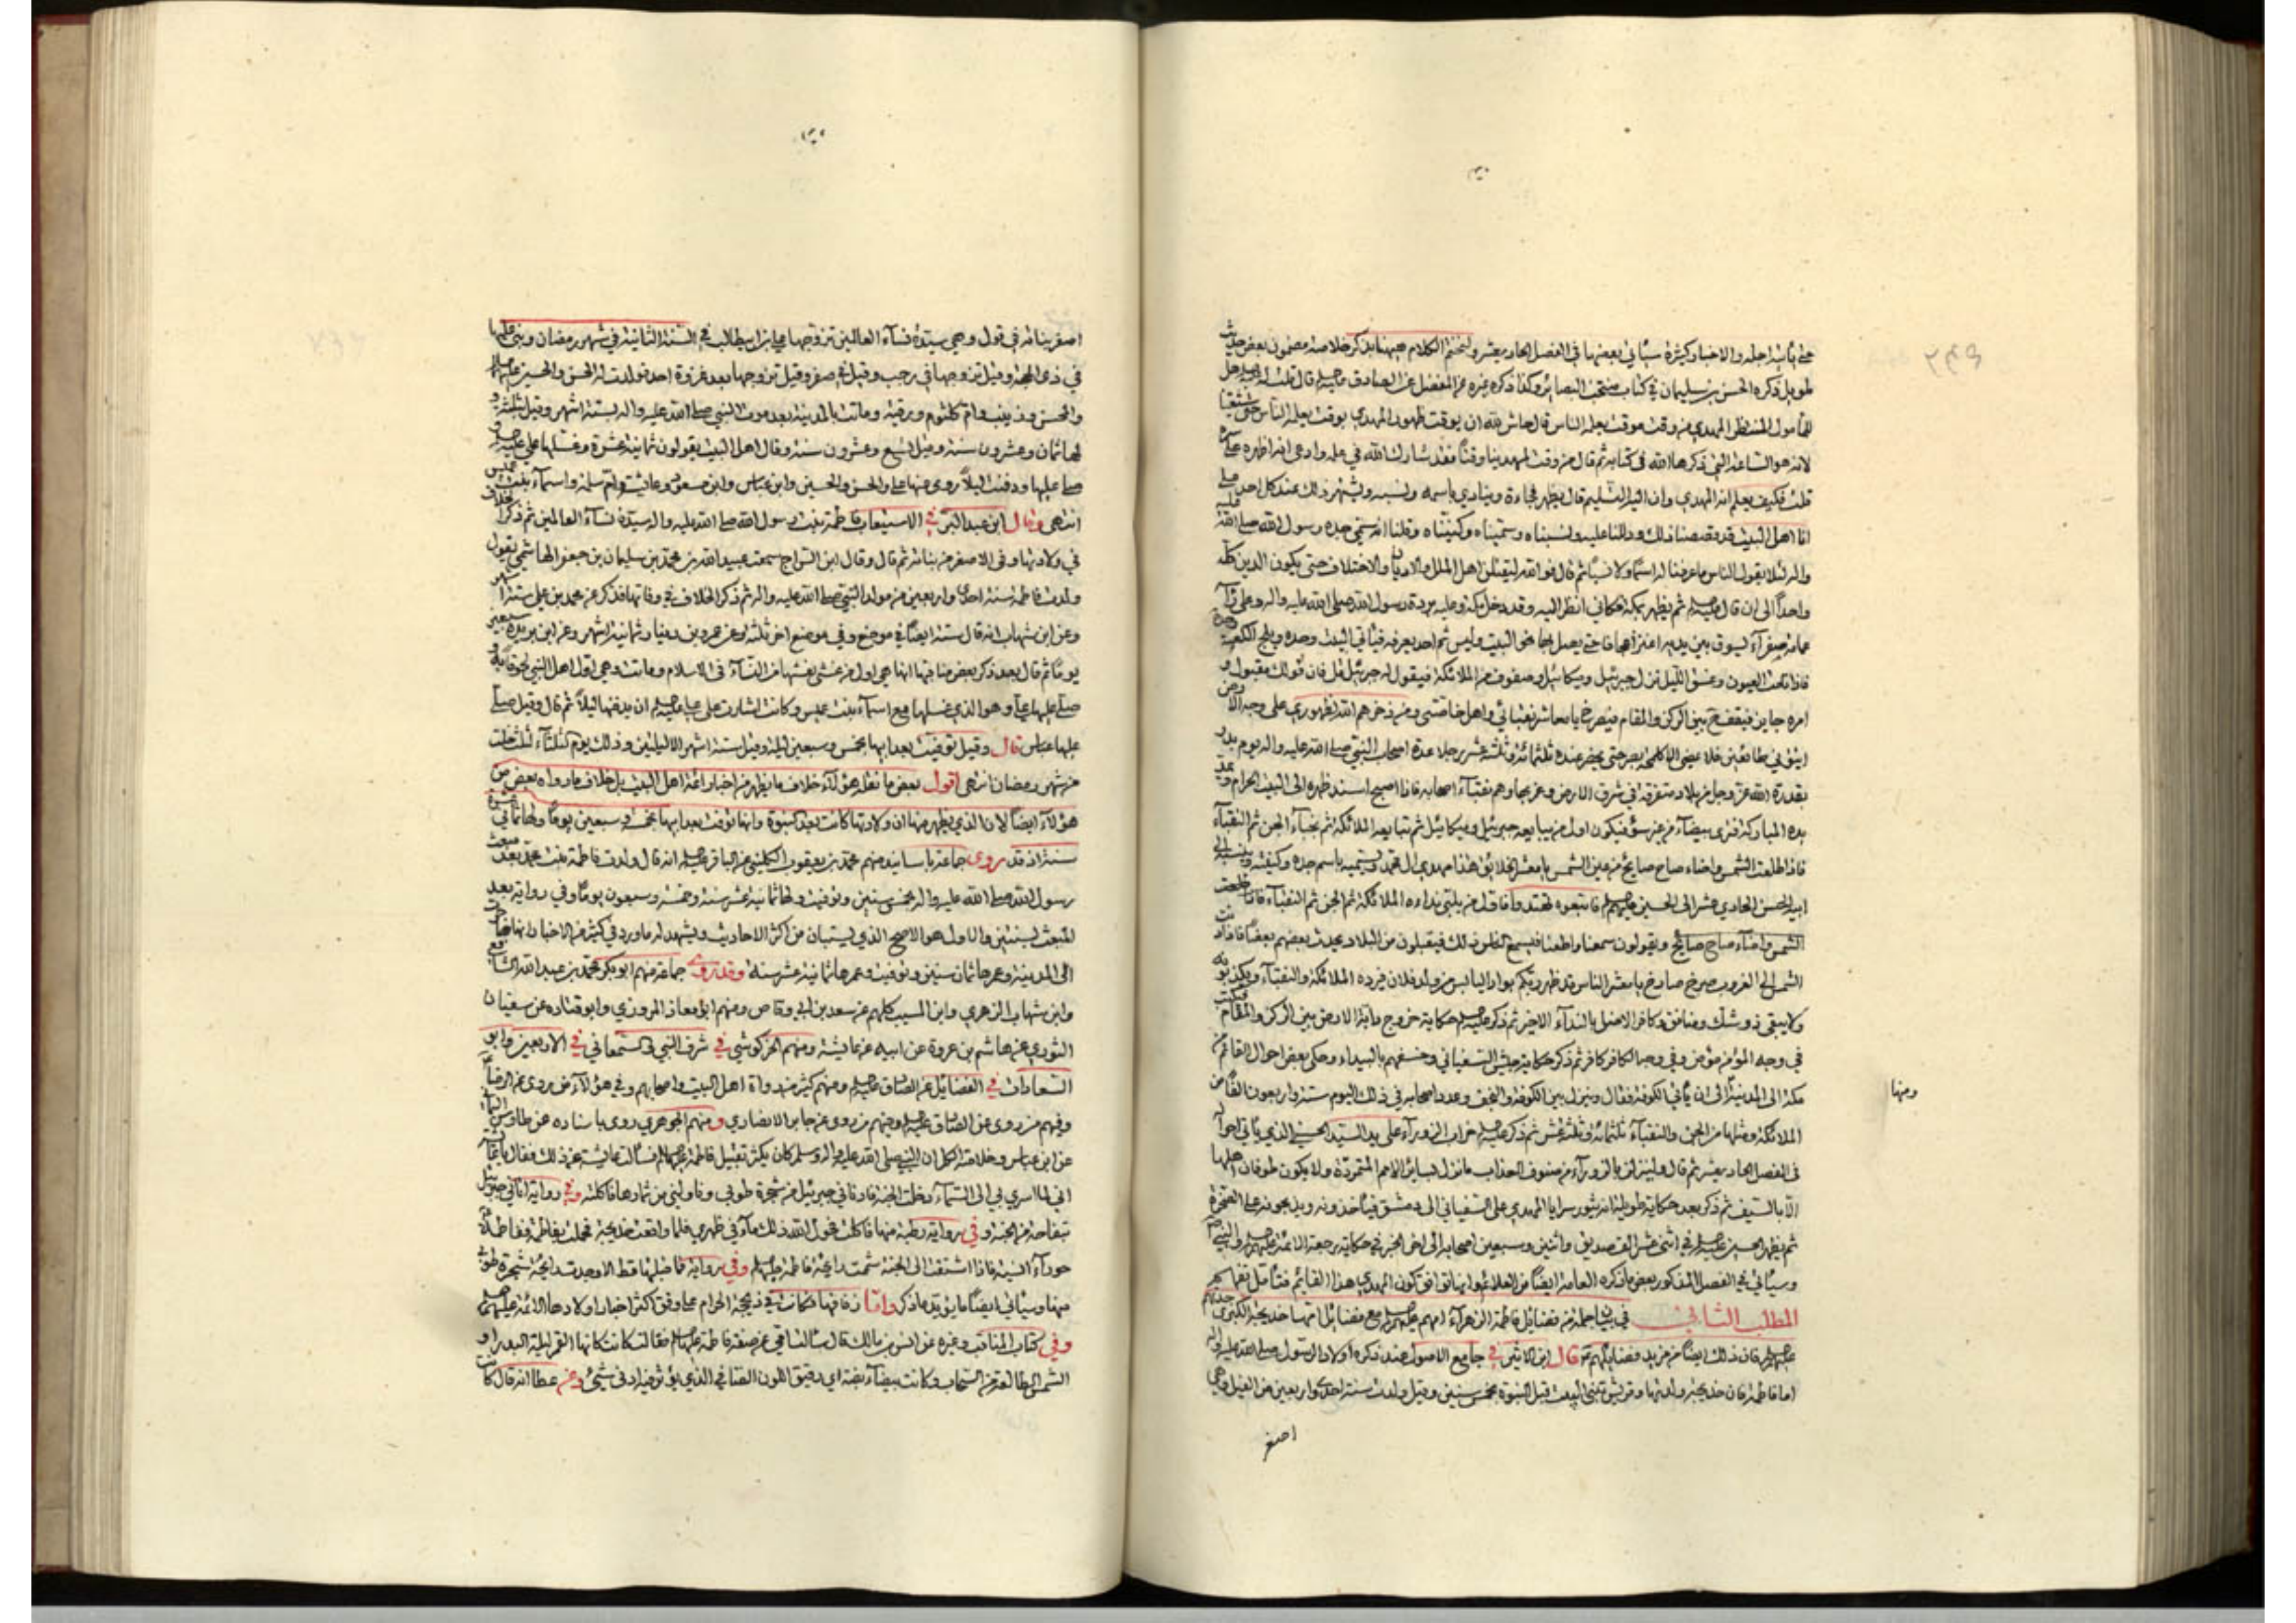 على بابه اجله والاخبار كثيرة سيأتي بعضها في الفصل الحادي عشر ولنختم الكلام ههنا بذكر خلاصة مضمون بعض حديث
طويل ذكره الحسن بن سليمان في كتاب منتخب البصائر وكذا ذكره غيره عن المفضل عن الصادق عليه السلام قال قلت له هل
للمأمول المنتظر المهدي من وقت موقت يعلمه الناس قال حاش لله ان يوقت ظهور المهدي بوقت يعلمه الناس
لانه هو الساعة التي ذكرها الله في كتابه ثم قال من وقت لمهدينا وقتا فقد شارك الله في علمه وادعى انه اظهره على
قلت فكيف يعلم انه المهدي وان اليه التسليم قال يظهر فجاءة وينادي باسمه ونسبه ويشتهر ذلك عند كل احد
انا اهل البيت قد قصصنا ذلك ودللنا عليه ونسبناه وسميناه وكنيناه وقلنا انه سمي جده رسول الله صلى الله عليه
واله لئلا يقول الناس ما عرفنا له اسما ولا نسبا ثم قال فوالله ليقتلن اهل الملل والاديان والاختلاف حتى يكون الدين كله
واحدا الى ان قال عليه السلام ثم يظهر بمكة فكاني انظر اليه وقد دخل مكة وعليه بردة رسول الله صلى الله عليه واله وعلى رأسه
عمامة صفراء يسوق بين يديه اعنزا عجافا حتى يصل بها نحو البيت وليس ثم احد يعرفه فيأتي البيت وحده ويلج الكعبة وحده
فاذا نامت العيون وغسق الليل نزل جبرئيل وميكائيل وصفوف من الملائكة فيقول له جبرئيل قل فان قولك مقبول و
امره جايز فيقف بين الركن والمقام فيصرخ يا معاشر نقبائي واهل خاصتي ومن ذخرهم الله لظهوري على وجه الارض
ايتوني طائعين فلا يمضي الا كلمحة بصر حتى يحضر عنده ثلثمائة وثلثة عشر رجلا عدة اصحاب النبي صلى الله عليه واله يوم بدر
بقدرة الله عز وجل من بلاد متفرقة في شرق الارض وغربها وهم نقباء اصحابه فاذا اصبح اسند ظهره الى البيت الحرام ويمد
يده المباركة فترى بيضاء من غير سوء فيكون اول من يبايعه جبرئيل وميكائيل ثم تبايعه الملائكة ثم نجباء الجن ثم النقباء
فاذا طلعت الشمس واضاء صاح صايح من عين الشمس يا معشر الخلائق هذا مهدي ال محمد ويسميه باسم جده وكنيته وينسبه الى
ابيه الحسن الحادي عشر الى الحسين عليهم السلام فاتبعوه تهتدوا فاول من يلبي نداءه الملائكة ثم الجن ثم النقباء فاذا طلعت
الشمس واضاء صاح صايح ويقولون سمعنا واطعنا فيسمع الخلق ذلك فيقبلون من البلاد يحدث بعضهم بعضا فاذا دنت
الشمس الى الغروب صرخ صارخ يا معشر الناس قد ظهر ربكم بوادي اليابس من ولد فلان فيرده الملائكة والنقباء ويكذبونه
ولا يبقى ذو شك ومنافق وكافر الا ضل بالنداء الاخير ثم ذكر عليه السلام حكاية خروج دابة الارض بين الركن والمقام فتكتب
في وجه المؤمن مؤمن وفي وجه الكافر كافر ثم ذكر حكاية جيش السفياني وخسفهم بالبيداء وحكى بعض احوال القائم من
مكة الى المدينة الى ان يأتي الكوفة فقال وينزل بين الكوفة والنجف وعدد اصحابه في ذلك اليوم ستة واربعون الفا من
ومنها
الملائكة ومثلها من الجن والنقباء ثلثمائة وثلثة عشر ثم ذكر عليه السلام خراب الزوراء على يد السيد الحسني الذي يأتي احواله
في الفصل الحادي عشر ثم قال ولينزلن بالزوراء من صنوف العذاب ما نزل بسائر الامم المتمردة ولا يكون طوفان اهلها
الا بالسيف ثم ذكر بعد حكاية طويلة انه يثور سرايا المهدي على السفياني الى دمشق فيأخذونه ويذبحونه على الصخرة
ثم يظهر الحسين عليه السلام في اثنى عشر الف صديق واثنين وسبعين اصحابه الى اخر الخبر في حكاية رجعة الائمة عليهم السلام والنبي ص
وسيأتي في الفصل المذكور بعض ما ذكره العامة ايضا من العلائم وانها توافق كون المهدي هذا القائم فتأمل تفهم
المطلب الثاني في بيان جملة من فضائل فاطمة الزهراء امهم عليهم السلام مع فضائل امها خديجة الكبرى جدتهم
عليهم السلام فان ذلك ايضا من مزيد فضايلهم قال ابن الاثير في جامع الاصول عند ذكره اولاد الرسول صلى الله عليه واله
اما فاطمة فان خديجة ولدتها وقريش تبني البيت قبل النبوة بخمس سنين وقيل ولدت سنة احدى واربعين من الفيل وهي
اصغر
اصغر بناته في قول وهي سيدة نساء العالمين تزوجها علي بن ابيطالب في السنة الثانية في شهر رمضان وبنى عليها
في ذي الحجة وقيل تزوجها في رجب وقيل في صفر وقيل تزوجها بعد غزوة احد فولدت له الحسن والحسين عليهما السلام
والمحسن وزينب وام كلثوم ورقية وماتت بالمدينة بعد موت النبي صلى الله عليه واله بستة اشهر وقيل بثلثة و
لها ثمان وعشرون سنة وقيل تسع وعشرون سنة وقال اهل البيت يقولون ثمانية عشرة وغسلها علي عليه السلام و
صلى عليها ودفنت ليلا روى عنها علي والحسن والحسين وابن عباس وابن مسعود وعائشة وام سلمة واسماء بنت عميس
انتهى وقال ابن عبد البر في الاستيعاب فاطمة بنت رسول الله صلى الله عليه واله سيدة نساء العالمين ثم ذكر الخلاف
في ولادتها وفي الاصغر من بناته ثم قال وقال ابن السراج سمعت عبيد الله بن محمد بن سليمان بن جعفر الهاشمي يقول
ولدت فاطمة سنة احدى واربعين من مولد النبي صلى الله عليه واله ثم ذكر الخلاف في وفاتها فذكر عن محمد بن علي ستة اشهر
وعن ابن شهاب انه قال ستة ايضا في موضع وفي موضع اخر ثلثة وعن عمرو بن دينار ثمانية اشهر وعن ابن بريدة سبعين
يوما ثم قال بعد ذكر بعض مناقبها انها هي اول من غشى نعشها من النساء في الاسلام وماتت وهي اول اهل النبي لحوقا به و
صلى عليها علي وهو الذي غسلها مع اسماء بنت عميس وكانت اشارت على علي عليه السلام ان يدفنها ليلا ثم قال وقيل صلى
عليها عباس قال وقيل توفيت بعد ابيها بخمس وسبعين ليلة وقيل ستة اشهر الا ليلتين وذلك يوم الثلثاء لثلث خلت
من شهر رمضان انتهى اقول بعض ما نقله هؤلاء خلاف ما يظهر من اخبار ائمة اهل البيت بل خلاف ما رواه بعض من
هؤلاء ايضا لان الذي يظهر منها ان ولادتها كانت بعد النبوة وانها توفت بعد ابيها بخمس وسبعين يوما ولها ثماني عشرة
سنة اذ قد روى جماعة باسانيد منهم محمد بن يعقوب الكليني عن الباقر عليه السلام انه قال ولدت فاطمة بنت محمد بعد مبعث
رسول الله صلى الله عليه واله بخمس سنين وتوفيت ولها ثمانية عشر سنة وخمسة وسبعون يوما وفي رواية بعد
المبعث بسنتين والاول هو الاصح الذي يستبان من اكثر الاحاديث ويشهد له ما ورد في كثير من الاخبار انها هاجرت
الى المدينة وعمرها ثمان سنين وتوفيت وعمرها ثمانية عشر سنة وقد روى جماعة منهم ابو بكر محمد بن عبد الله الشافعي
وابن شهاب الزهري وابن المسيب كلهم عن سعد بن ابي وقاص ومنهم ابو معاذ المروزي وابو قتادة عن سفيان
الثوري عن هاشم بن عروة عن ابيه عن عايشة ومنهم الخركوشي في شرف النبي والسمعاني في الاربعين وابو
السعادات في الفضايل عن الصادق عليه السلام ومنهم كثير من رواة اهل البيت واصحابهم وفي هؤلاء من روى عن الرضا
وفيهم من روى عن الصادق عليه السلام وفيهم من روى عن جابر الانصاري ومنهم الجوهري روى باسناده عن طاوس اليماني
عن ابن عباس وخلاصة الكل ان النبي صلى الله عليه واله وسلم كان يكثر تقبيل فاطمة عليها السلام فسألته عائشة عن ذلك فقال يا عايشة
اني لما اسري بي الى السماء دخلت الجنة فادناني جبرئيل من شجرة طوبى وناولني من ثمارها فاكلته وفي رواية اتاني جبرئيل
بتفاحة من الجنة وفي رواية رطبة منها فاكلت فحول الله ذلك ماء في ظهري فلما واقعت خديجة فحملت بفاطمة ففاطمة
حوراء انسية فاذا اشتقت الى الجنة شممت رايحة فاطمة عليها السلام وفي رواية فما قبلتها قط الا وجدت رايحة شجرة طوبى
منها وسيأتي ايضا ما يؤيد ما ذكر واما زفافها فكانت في ذي حجة الحرام على وفق اكثر اخبار اولادها الائمة عليهم السلام
وفي كتاب المناقب وغيره عن انس بن مالك قال سألت امي عن صفة فاطمة عليها السلام فقالت كانت كانها القمر ليلة البدر او
الشمس الطالعة من السحاب وكانت بيضاء بضة اي دقيق اللون الصافي الذي يؤثر فيه ادنى شيئ وعن عطا انه قال كانت